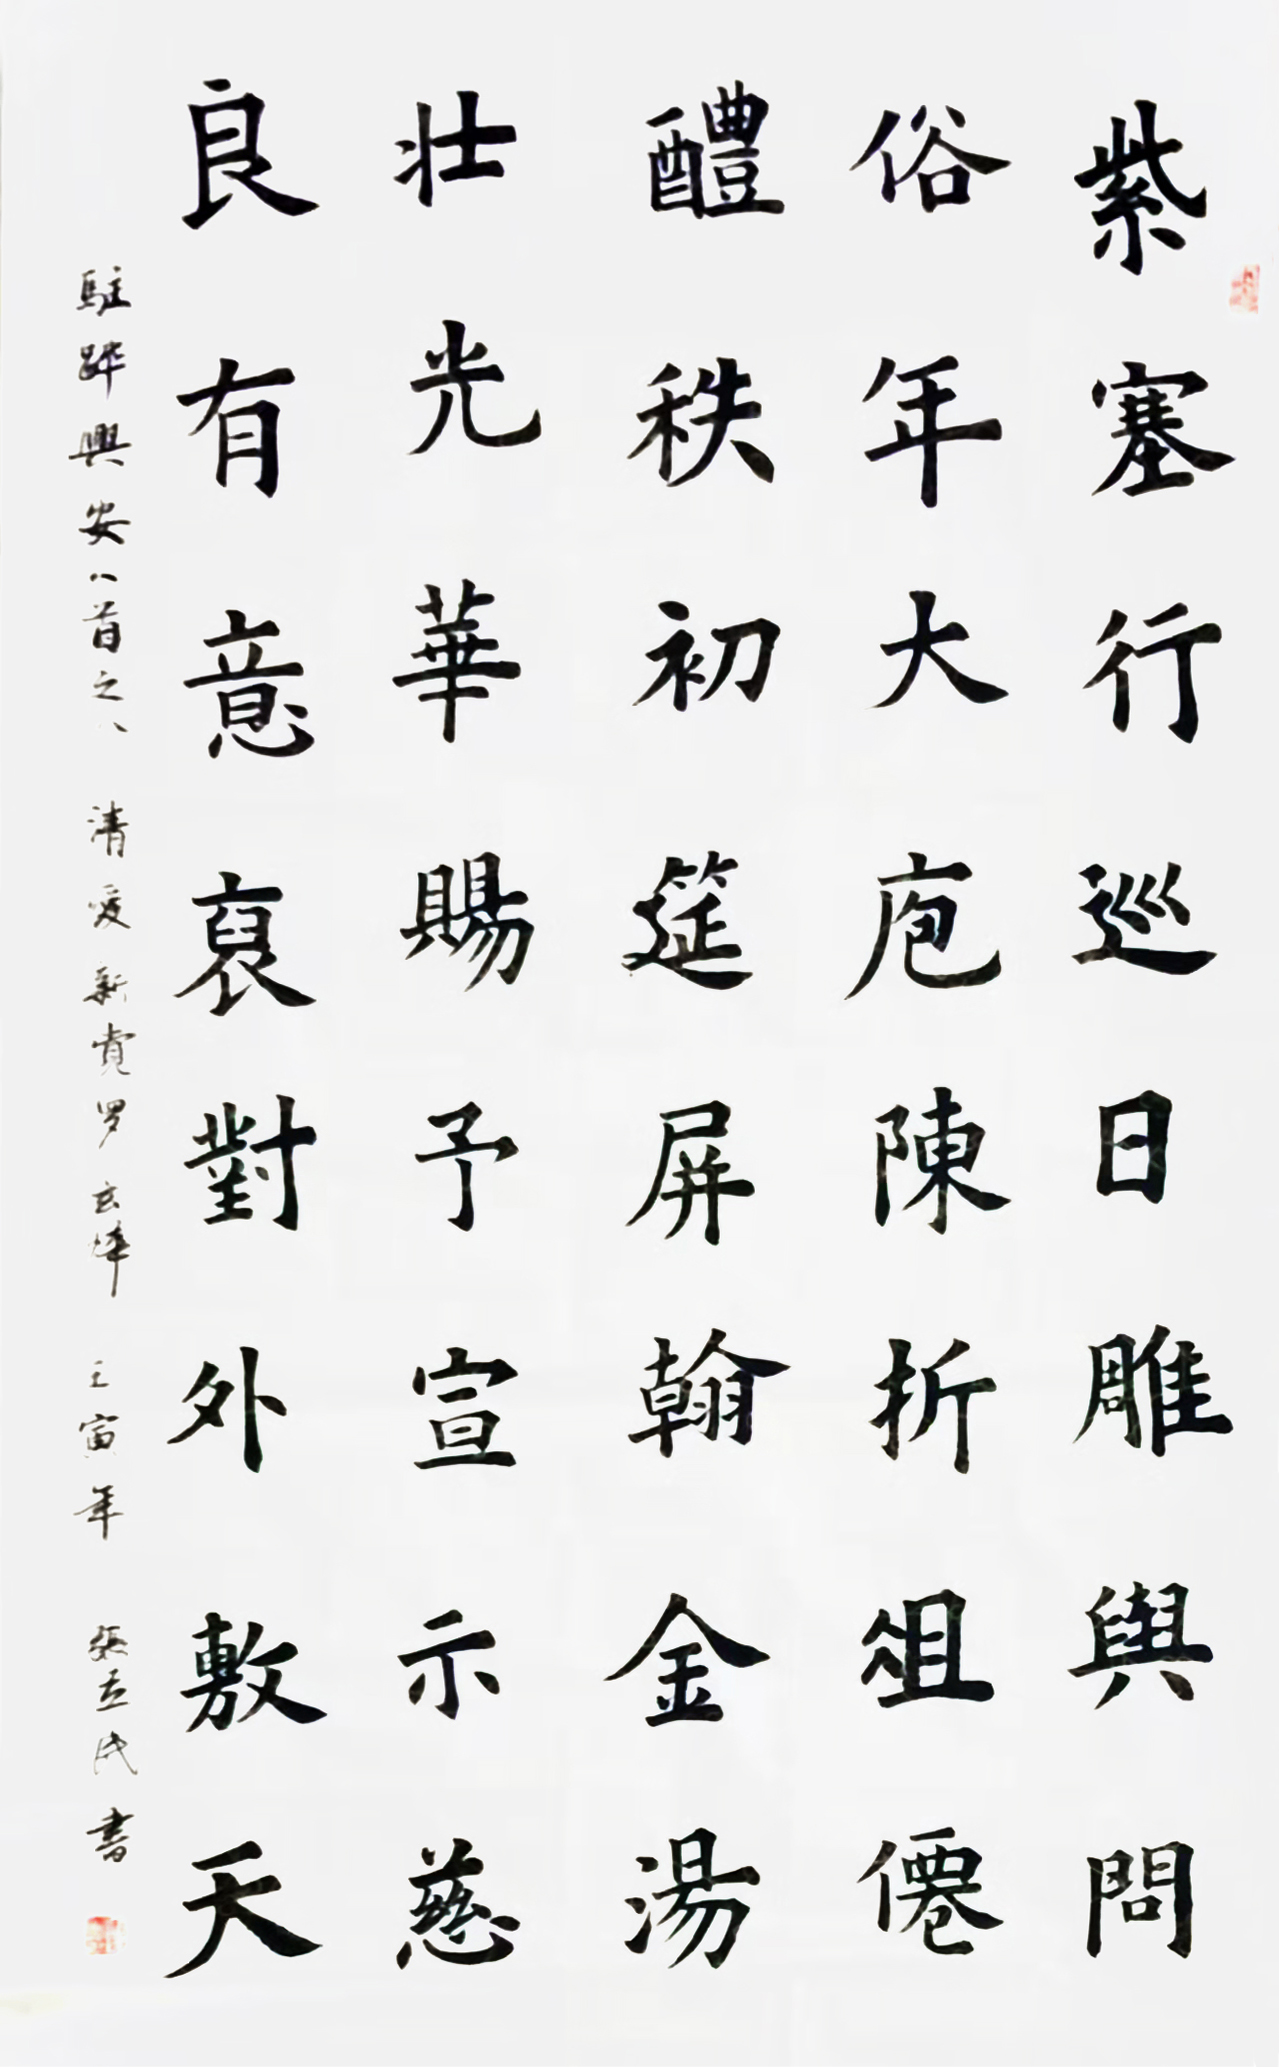 紫塞行巡日雕輿問
俗年大庖陳折俎僊
醴秩初筵屏翰金湯
壯光華賜予宣示慈
良有意裒對外敷天
駐蹕興安八首之八 清 愛新覚罗 玄燁 壬寅年 張立民書